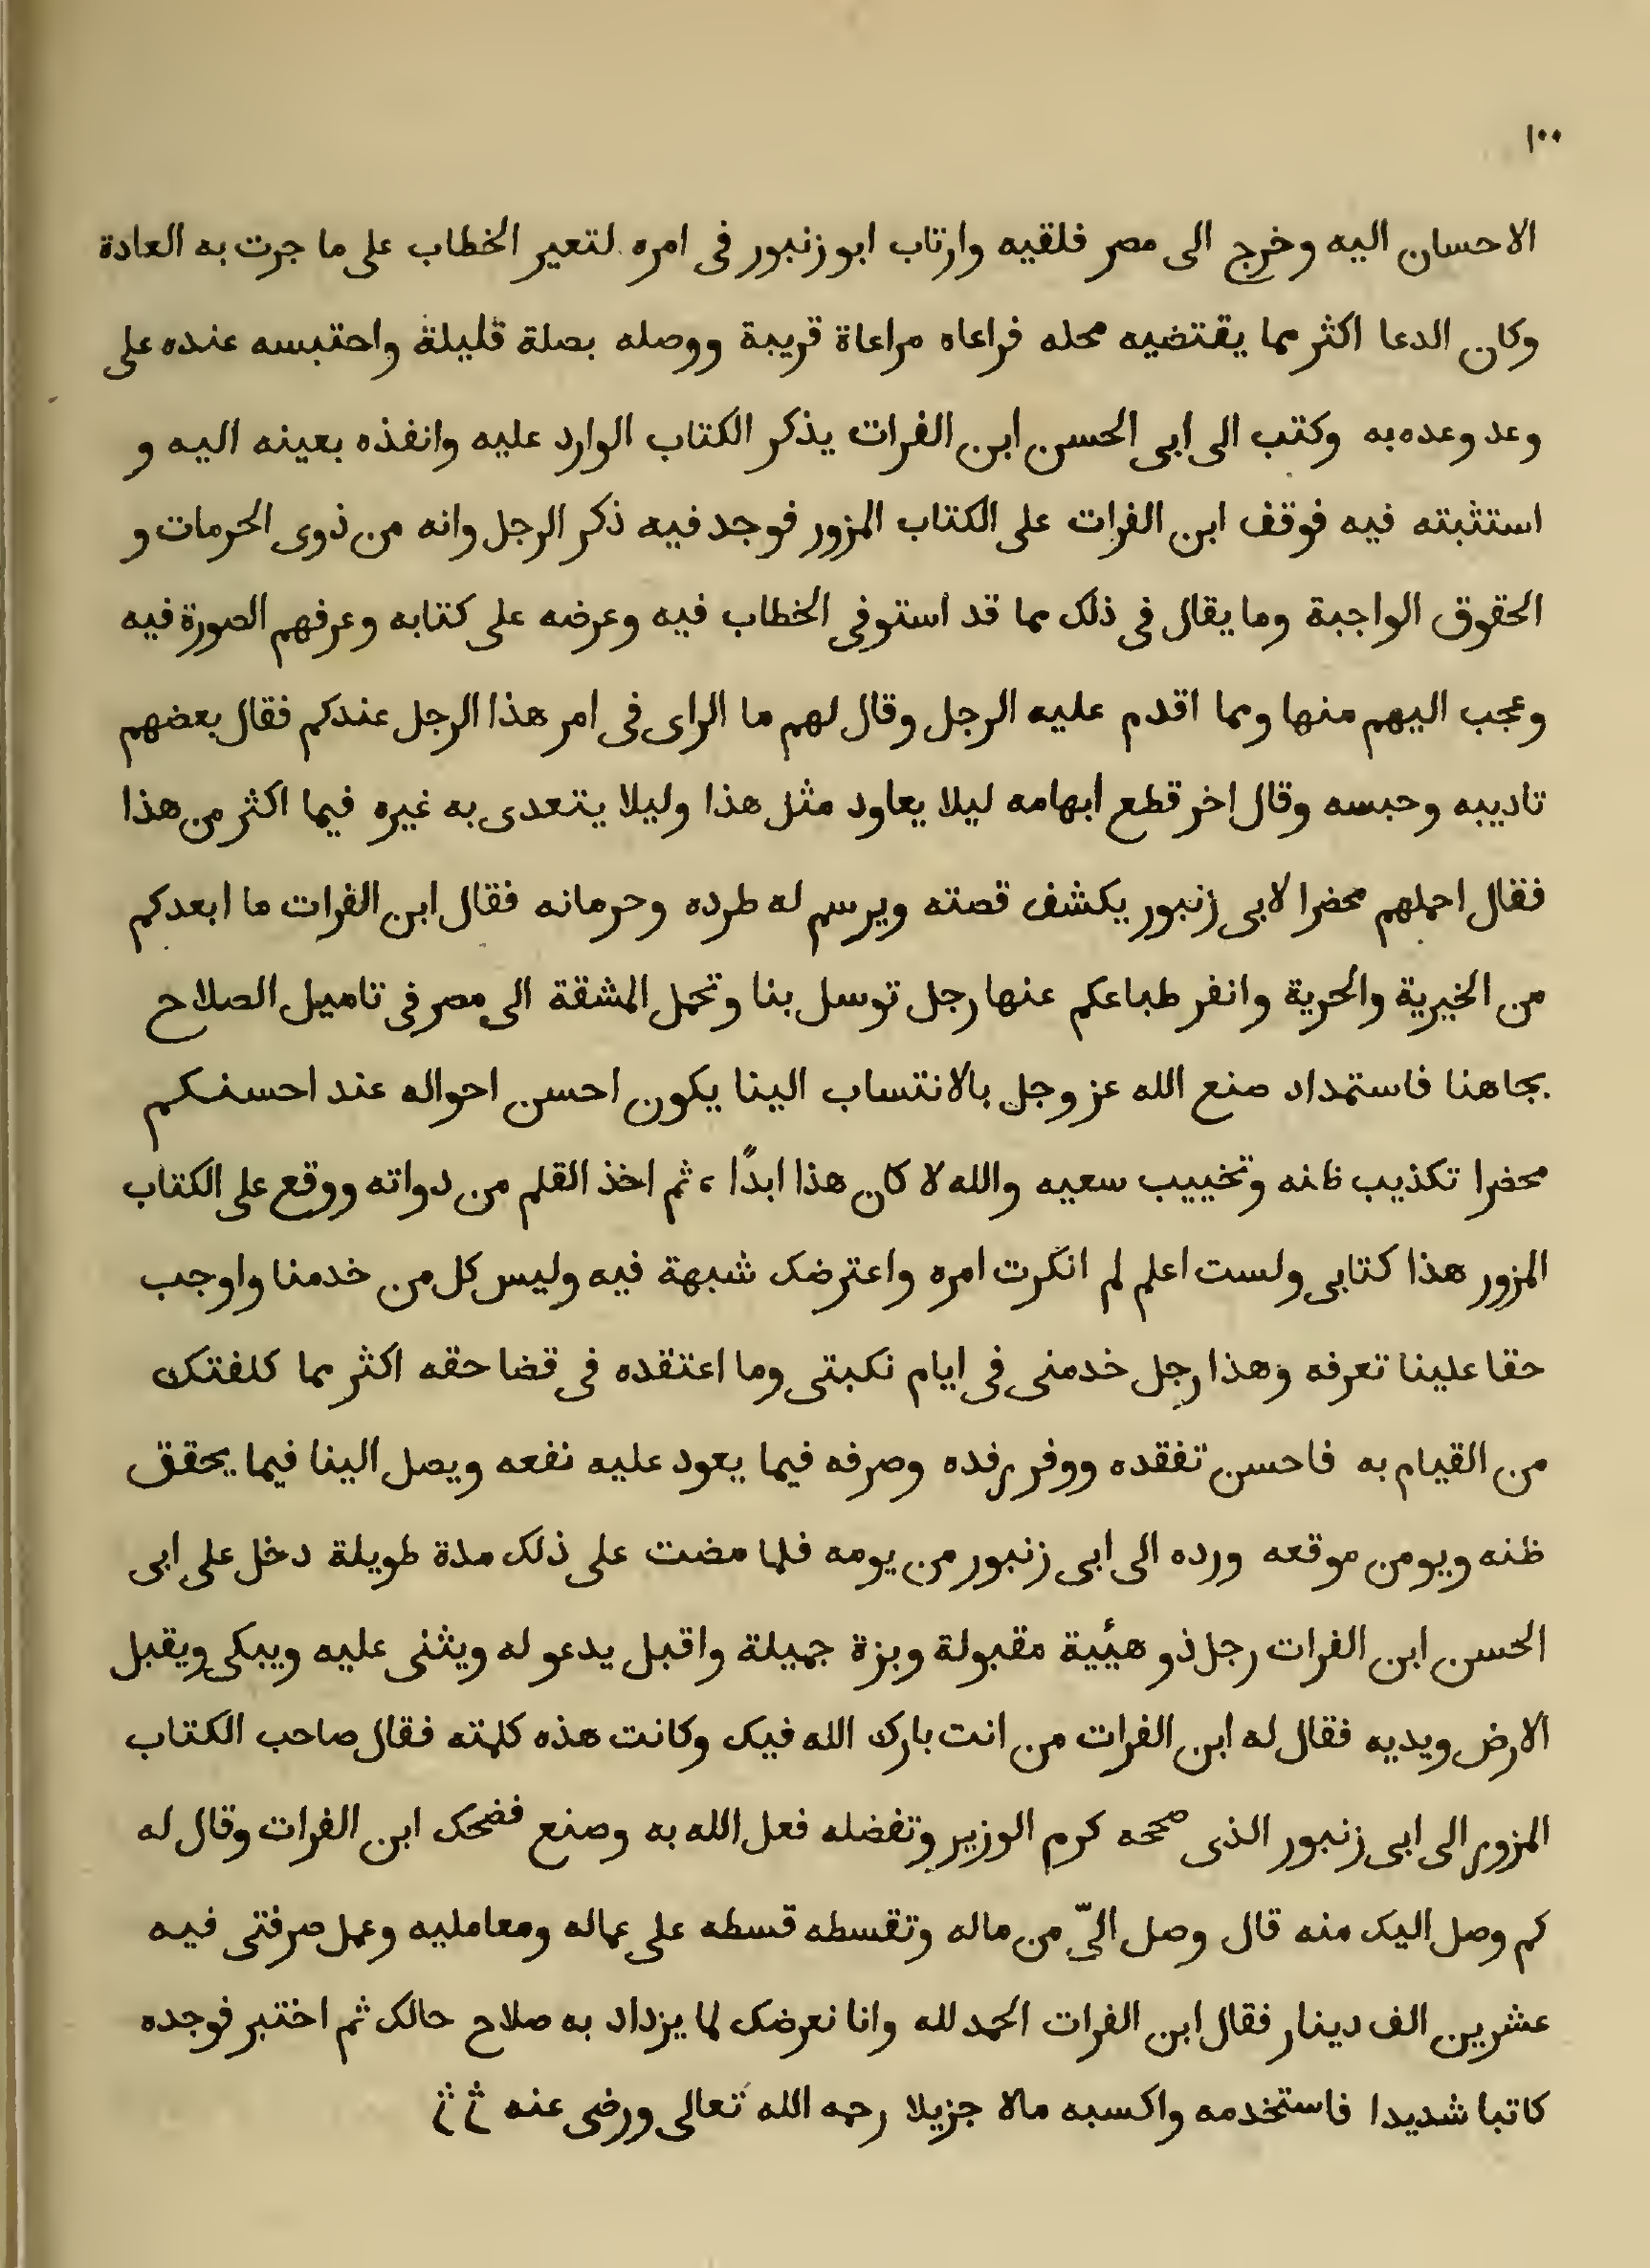 ١٠٠
الاحسان اليه وخرج الى مصر فلقيه وارتاب ابو زنبور فى امره لتعير الخطاب على ما جرت به العادة
وكان الدعا اكثر مما يقتضيه محله فراعاه مراعاة قريبة ووصله بصلة قليلة واحتبسه عنده على
وعد وعده به وكتب الى ابى الحسن ابن الفرات يذكر الكتاب الوارد عليه وانفذه بعينه اليه و
استثبته فيه فوقف ابن الفرات على الكتاب المزور فوجد فيه ذكر الرجل وانه من ذوى الحرمات و
الحقوق الواجبة وما يقال فى ذلك مما قد استوفى الخطاب فيه وعرضه على كتابه وعرفهم الصورة فيه
وعجب اليهم منها ومما اقدم عليه الرجل وقال لهم ما الراى فى امر هذا الرجل عندكم فقال بعضهم
تاديبه وحبسه وقال اخر قطع ابهامه ليلا يعاود مثل هذا وليلا يتعدى به غيره فيما اكثر من هذا
فقال احملهم محضرا لابى زنبور يكشف قصته ويرسم له طرده وحرمانه فقال ابن الفرات ما ابعدكم
من الخيرية والحرية وانفر طباعكم عنها رجل توسل بنا وتحمل المشقة الى مصر فى تاميل الصلاح
بجاهنا فاستمداد صنع الله عز وجل بالانتساب الينا يكون احسن احواله عند احسنكم
محضرا تكذيب ظنه وتخييب سعيه والله لا كان هذا ابدًا ، ثم اخذ القلم من دواته ووقع على الكتاب
المزور هذا كتابى ولست اعلم لم انكرت امره واعترضك شبهة فيه وليس كل من خدمنا واوجب
حقا علينا تعرفه وهذا رجل خدمنى فى ايام نكبتى وما اعتقده فى قضا حقه اكثر مما كلفتك
من القيام به فاحسن تفقده ووفر رفده وصرفه فيما يعود عليه نفعه ويصل الينا فيما يحقق
ظنه ويومن موقعه ورده الى ابى زنبور من يومه فلما مضت على ذلك مدة طويلة دخل على ابى
الحسن ابن الفرات رجل ذو هيئية مقبولة وبزة جميلة واقبل يدعو له ويثنى عليه ويبكى ويقبل
الارض ويديه فقال له ابن الفرات من انت بارك الله فيك وكانت هذه كلمته فقال صاحب الكتاب
المزور الى ابى زنبور الذى صححه كرم الوزير وتفضله فعل الله به وصنع فضحك ابن الفرات وقال له
كم وصل اليك منه قال وصل الىّ من ماله وتقسطه قسطه على عماله ومعامليه وعمل صرفتى فيه
عشرين الف دينار فقال ابن الفرات الحمد لله وانا نعرضك لما يزداد به صلاح حالك ثم اختبر فوجده
كاتبا شديدا فاستخدمه واكسبه مالا جزيلا رحمه الله تعالى ورضى عنه